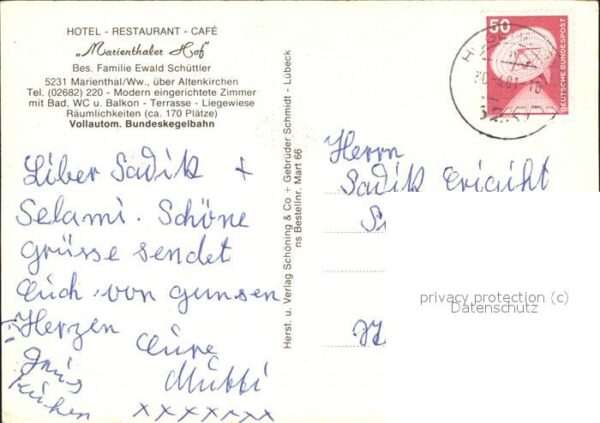 HOTEL - RESTAURANT - CAFÉ
„Marienthaler Hof"
Bes. Familie Ewald Schüttler
5231 Marienthal/Ww., über Altenkirchen
Tel. (02682) 220 - Modern eingerichtete Zimmer
mit Bad, WC u. Balkon - Terrasse - Liegewiese
Räumlichkeiten (ca. 170 Plätze)
Vollautom. Bundeskegelbahn
Liber Sadik +
Selami. Schöne
grüsse sendet
Euch von gansen
Herzen
Eure
Mutti
xxxxxxx
Herst. u. Verlag Schöning & Co + Gebrüder Schmidt - Lübeck
ns Bestellnr. Mart 66
50
DEUTSCHE BUNDESPOST
Herrn
Sadik
privacy protection (c)
Datenschutz